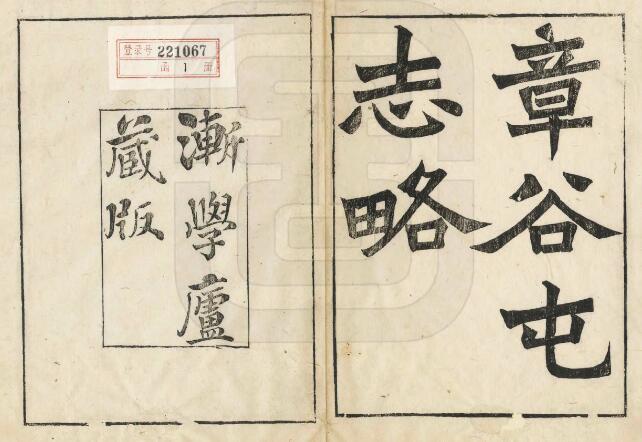 章谷屯
志略
漸學廬
藏版
登录号 221067
函 1 册